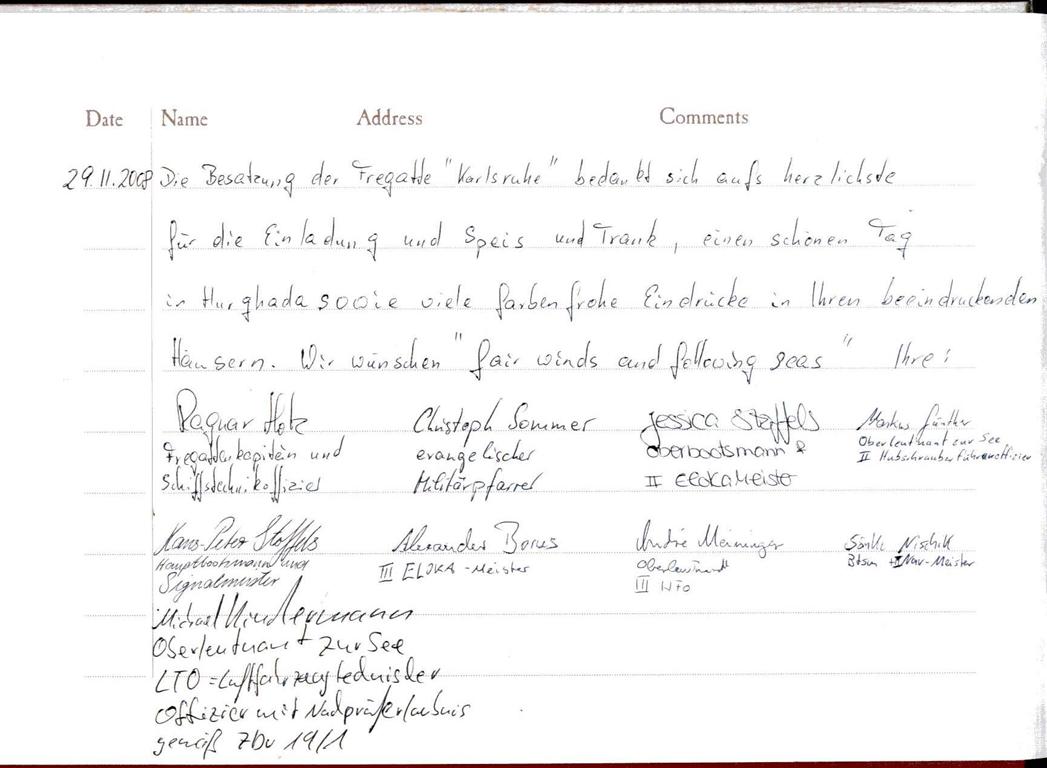 Date Name Address Comments
29.11.2008 Die Besatzung der Fregatte "Karlsruhe" bedankt sich aufs herzlichste
für die Einladung und Speis und Trank, einen schönen Tag
in Hurghada sowie viele farbenfrohe Eindrücke in Ihren beeindruckenden
Häusern. Wir wünschen "fair winds and following seas" Ihre:
Ragnar Hotz
Fregattenkapitän und
Schiffstechnikoffizier
Christoph Sommer
evangelischer
Militärpfarrer
Jessica Steffels
Oberbootsmann
II ElokaMeister
Markus Günther
Oberleutnant zur See
II Hubschrauberführeroffizier
Hans-Peter Stoffels
Hauptbootsmann und
Signalmeister
Alexander Borus
III ELOKA-Meister
André Meininger
Oberleutnant
III WFO
Sönke Nischik
Btsm + II Nav-Meister
Michael
Oberleutnant zur See
LTO = Luftfahrzeugtechnischer
Offizier mit Nachprüferlaubnis
gemäß ZDv 19/1